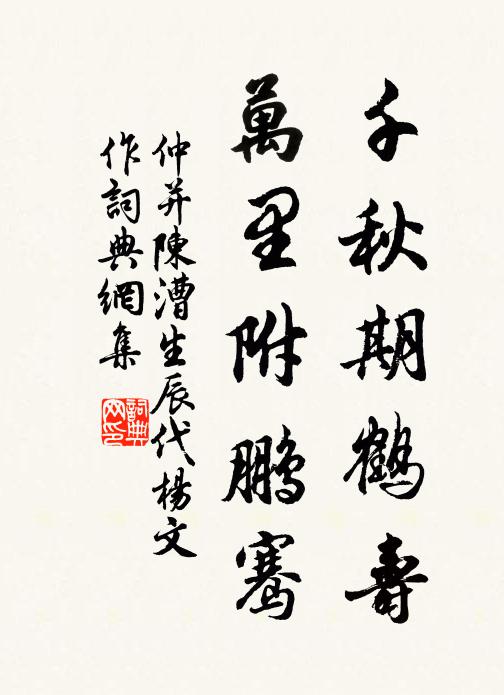 千秋期鶴壽
萬里附鵬騫
仲并陳漕生辰代楊文
作詞典網集
詞典网印